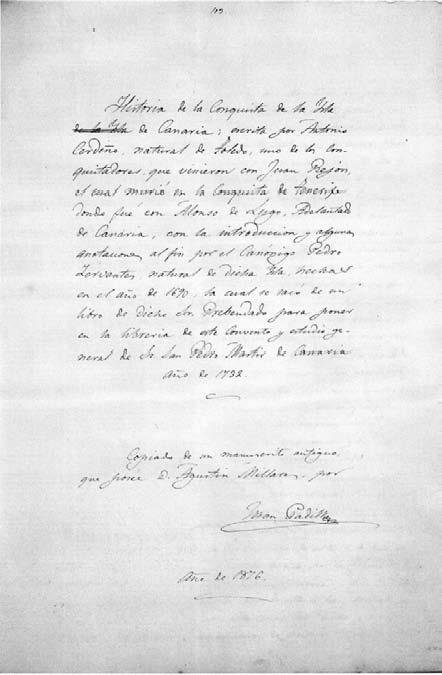 113
Historia de la Conquista de la Isla
de la Isla de Canaria; escrita por Antonio
Cerdeño, natural de Toledo, uno de los con-
quistadores que vinieron con Juan Rejon,
el cual murió en la Conquista de Tenerife
donde fue con Alonso de Lugo, Adelantado
de Canaria; con la introduccion y algunas
anotaciones al fin por el Canónigo Pedro
Cervantes, natural de dicha Isla, hechas
en el año de 1690, la cual se sacó de un
libro de dicho Sr. Prebendado para poner
en la libreria de este Convento y estudio ge-
neral de Sr. San Pedro Martir de Canaria
año de 1732.
Copiado de un manuscrito antiguo
que posée D. Agustin Millares, por
Juan Padilla
Año de 1876.